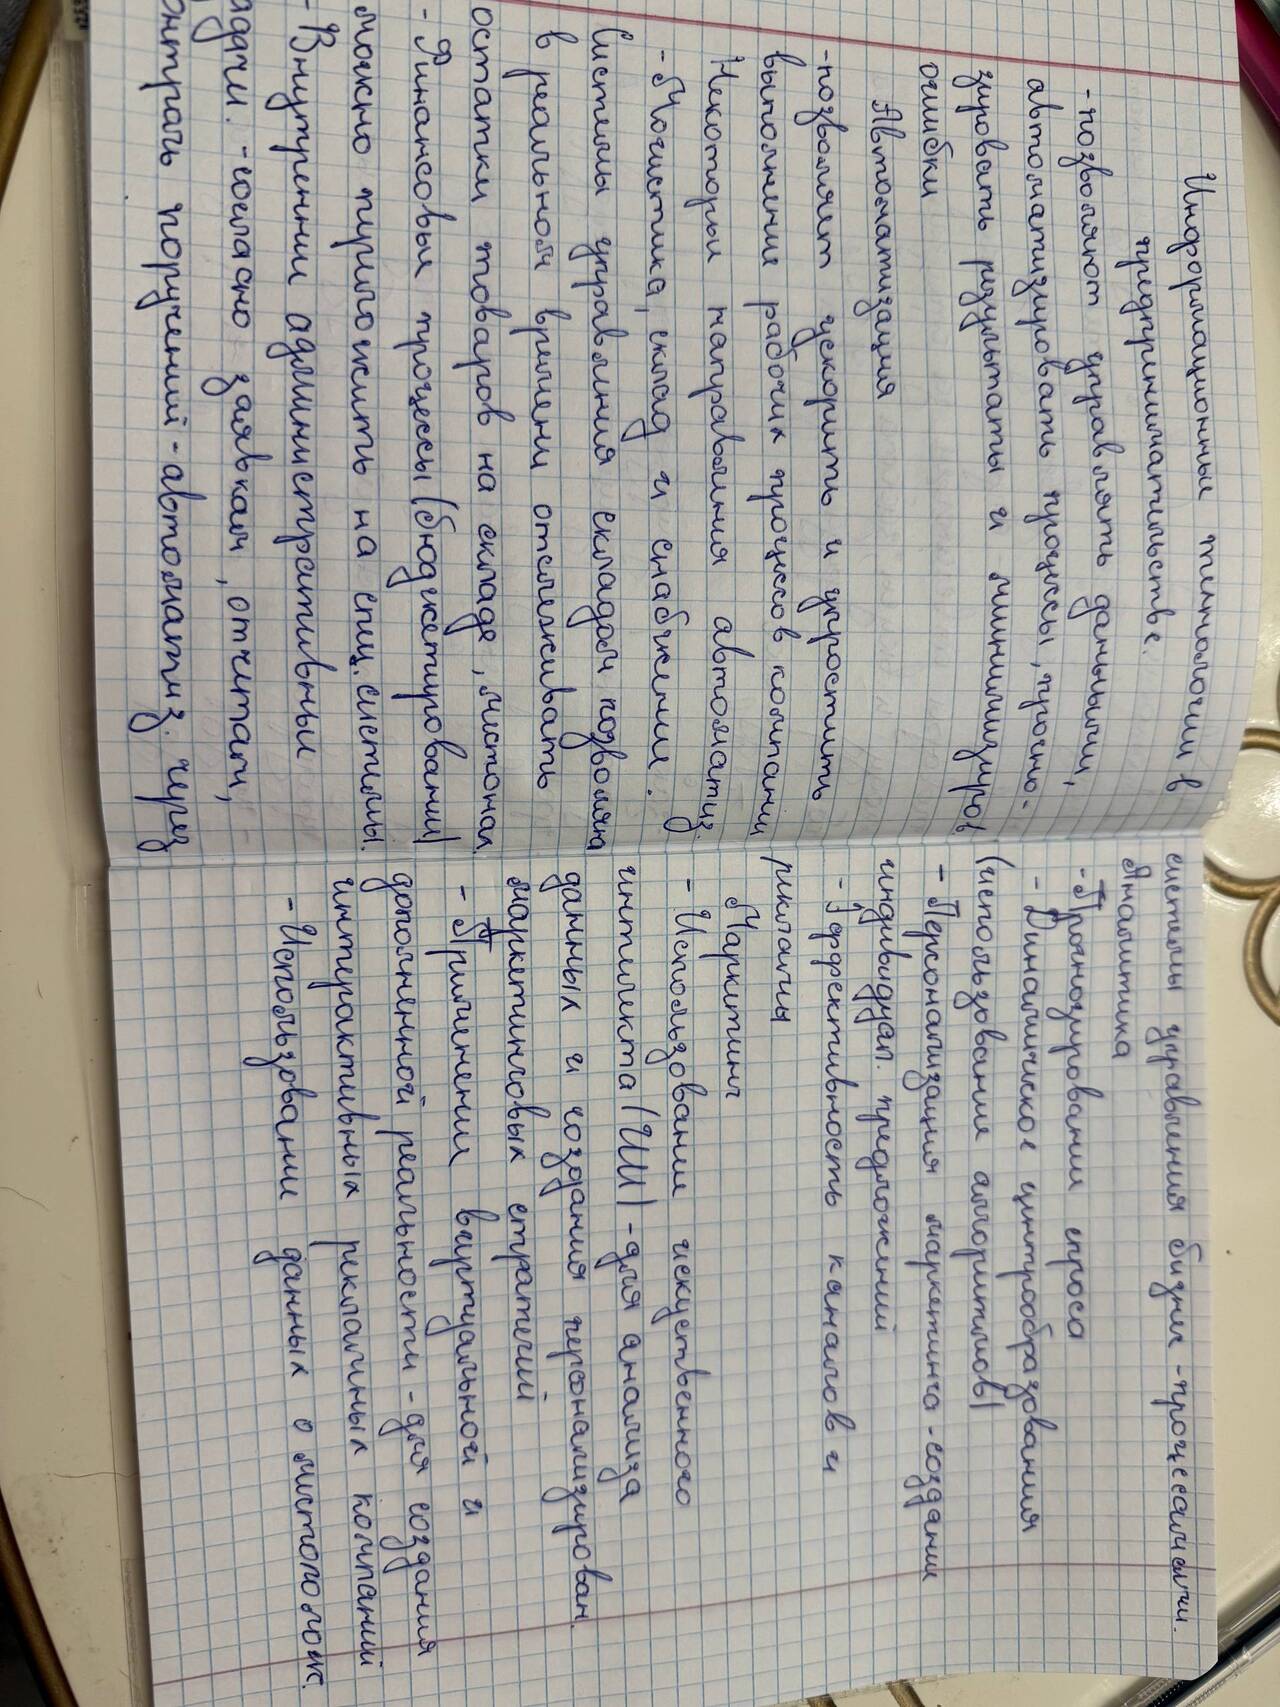 Информационные технологии в
предпринимательстве.
- позволяют управлять данными,
автоматизировать процессы, прогно-
зировать результаты и минимизиров
ошибки
Автоматизация
- позволяет ускорить и упростить
выполнение рабочих процессов компании
Некоторые направления автоматиз.
- Логистика, склад и снабжение.
Системы управления складом позволяю
в реальном времени отслеживать
остатки товаров на складе, местонах.
- Финансовые процессы (бюджетирование)
можно переложить на спец. системы.
- Внутренние административные
адачи. - согласно заявкам, отчетам,
онтроль поручений - автоматиз. через
системы управления бизнес - процессами.
Аналитика
- Прогнозирование спроса
- Динамическое ценообразования
(использование алгоритмов)
- Персонализация маркетинга - создание
индивидуал. предложений
- Эффективность каналов и
рекламы
Маркетинг
- Использование искуственного
интеллекта (ИИ) - для анализа
данных и создания персонализирован.
маркетинговых стратегий
- Применение виртуальной и
дополненной реальности - для создания
интерактивных рекламных компаний
- Использование данных о местополож.